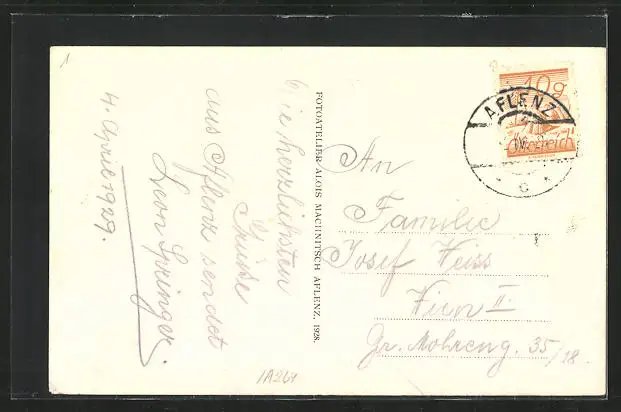 1
4. April 1929.
Die herzlichsten
Grüße
aus Aflenz sendet
Leon Springer.
FOTOATELIER ALOIS MACHNITSCH AFLENZ, 1928.
10g
AFLENZ
Österreich
C
An
Familie
Josef Weiss
Wien II.
Gr. Mohreng. 35/28.
1A264